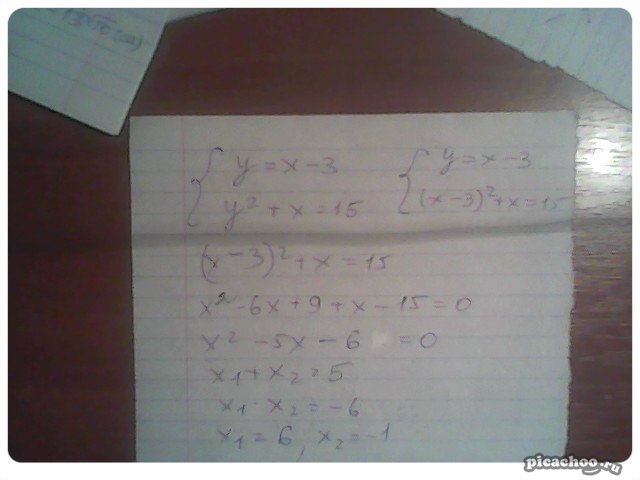 { y = x - 3
y² + x = 15
{ y = x - 3
(x - 3)² + x = 15
(x - 3)² + x = 15
x² - 6x + 9 + x - 15 = 0
x² - 5x - 6 = 0
x₁ + x₂ = 5
x₁ · x₂ = -6
x₁ = 6, x₂ = -1
picachoo.ru